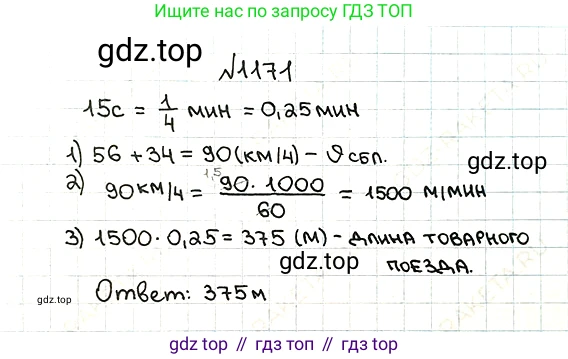 Ищите нас по запросу ГДЗ ТОП
gdz.top
№1171
15с = 1/4 мин = 0,25мин
1) 56 + 34 = 90 (км/ч) - υ сбл.
gdz.top
2) 90 км/ч = 90 · 1000 / 60 = 1500 м/мин
1,5
3) 1500 · 0,25 = 375 (м) - длина товарного
gdz.top
поезда.
gdz.top
Ответ: 375м
gdz.top // гдз топ // gdz top // гдз топ